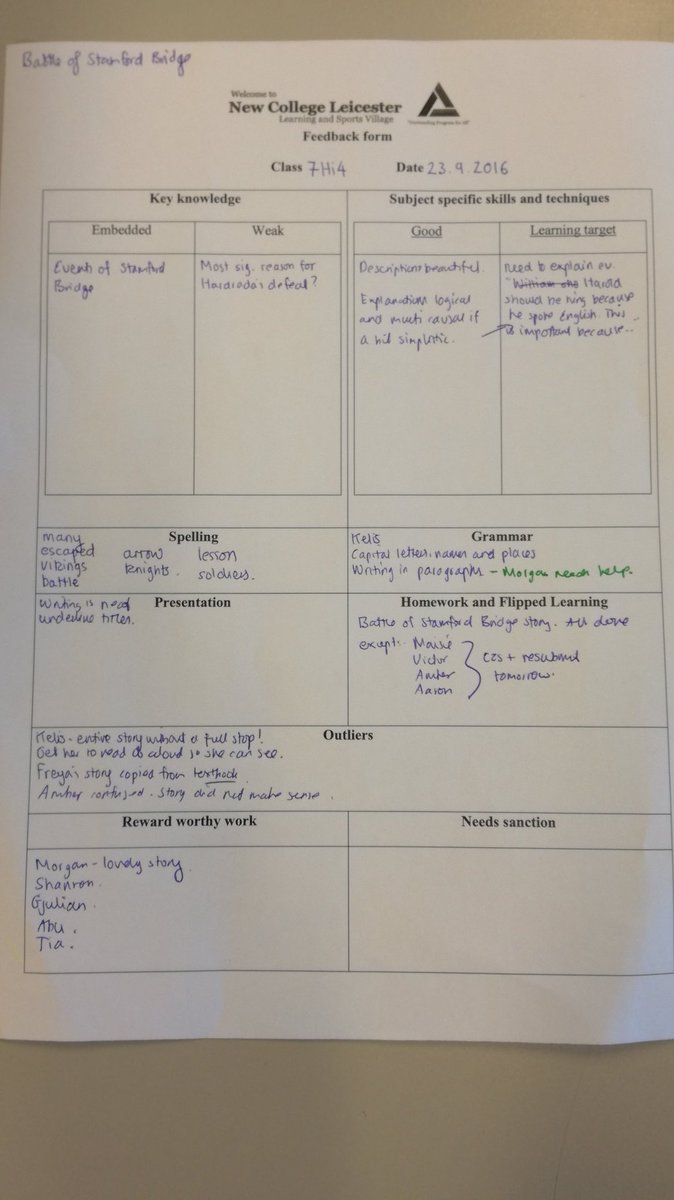 Battle of Stamford Bridge
Welcome to
New College Leicester
Learning and Sports Village
Feedback form
Class 7Hi4 Date 23.9.2016
Key knowledge
Embedded
Events of Stamford
Bridge
Weak
Most sig. reason for
Hardrada's defeat?
Subject specific skills and techniques
Good
Descriptions beautiful.
Explanations logical
and multi causal if
a bit simplistic.
Learning target
need to explain ev.
"William sho Harold
should be king because
he spoke English. This
is important because..
Spelling
many
escaped arrow lesson
vikings knights. soldiers.
battle
Grammar
Kelis
Capital letters, names and places
Writing in paragraphs - Morgan needs help.
Presentation
Writing is need
underline titles.
Homework and Flipped Learning
Battle of Stamford Bridge story. All done
except: Maisie
Victor
Amber
Aaron
C2s + resubmit
tomorrow.
Outliers
Kelis - entire story without a full stop!
Get her to read aloud so she can see.
Freya's story copied from textbook
Amber confused. Story did not make sense.
Reward worthy work
Morgan - lovely story
Shannon.
Gjulian.
Abu.
Tia.
Needs sanction